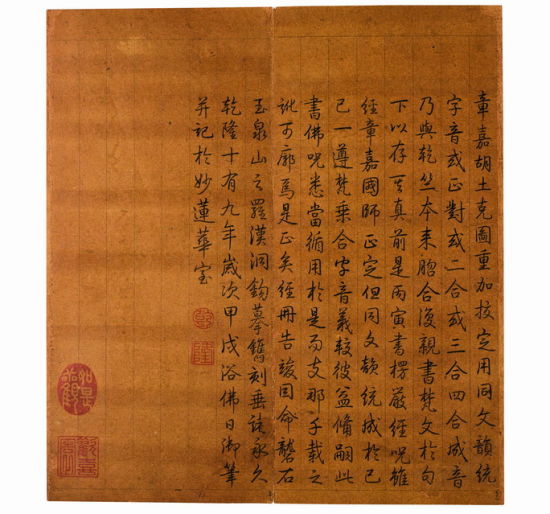 章嘉胡土克圖重加挍定用同文韻統
字音或正對或二合或三合四合成音
乃與乾竺本來脗合復親書梵文於句
下以存其真前是丙寅書楞嚴經呪雖
經章嘉國師正定但同文韻統成於己
巳一遵梵乘合字音義較彼益備嗣此
書佛呪悉當循用於是而支那千載之
訛可廓焉是正矣經冊告竣因命礱石
玉泉山之羅漢洞鈎摹鐫刻垂諸永久
乾隆十有九年歲次甲戌浴佛日御筆
并記於妙蓮華室
如是